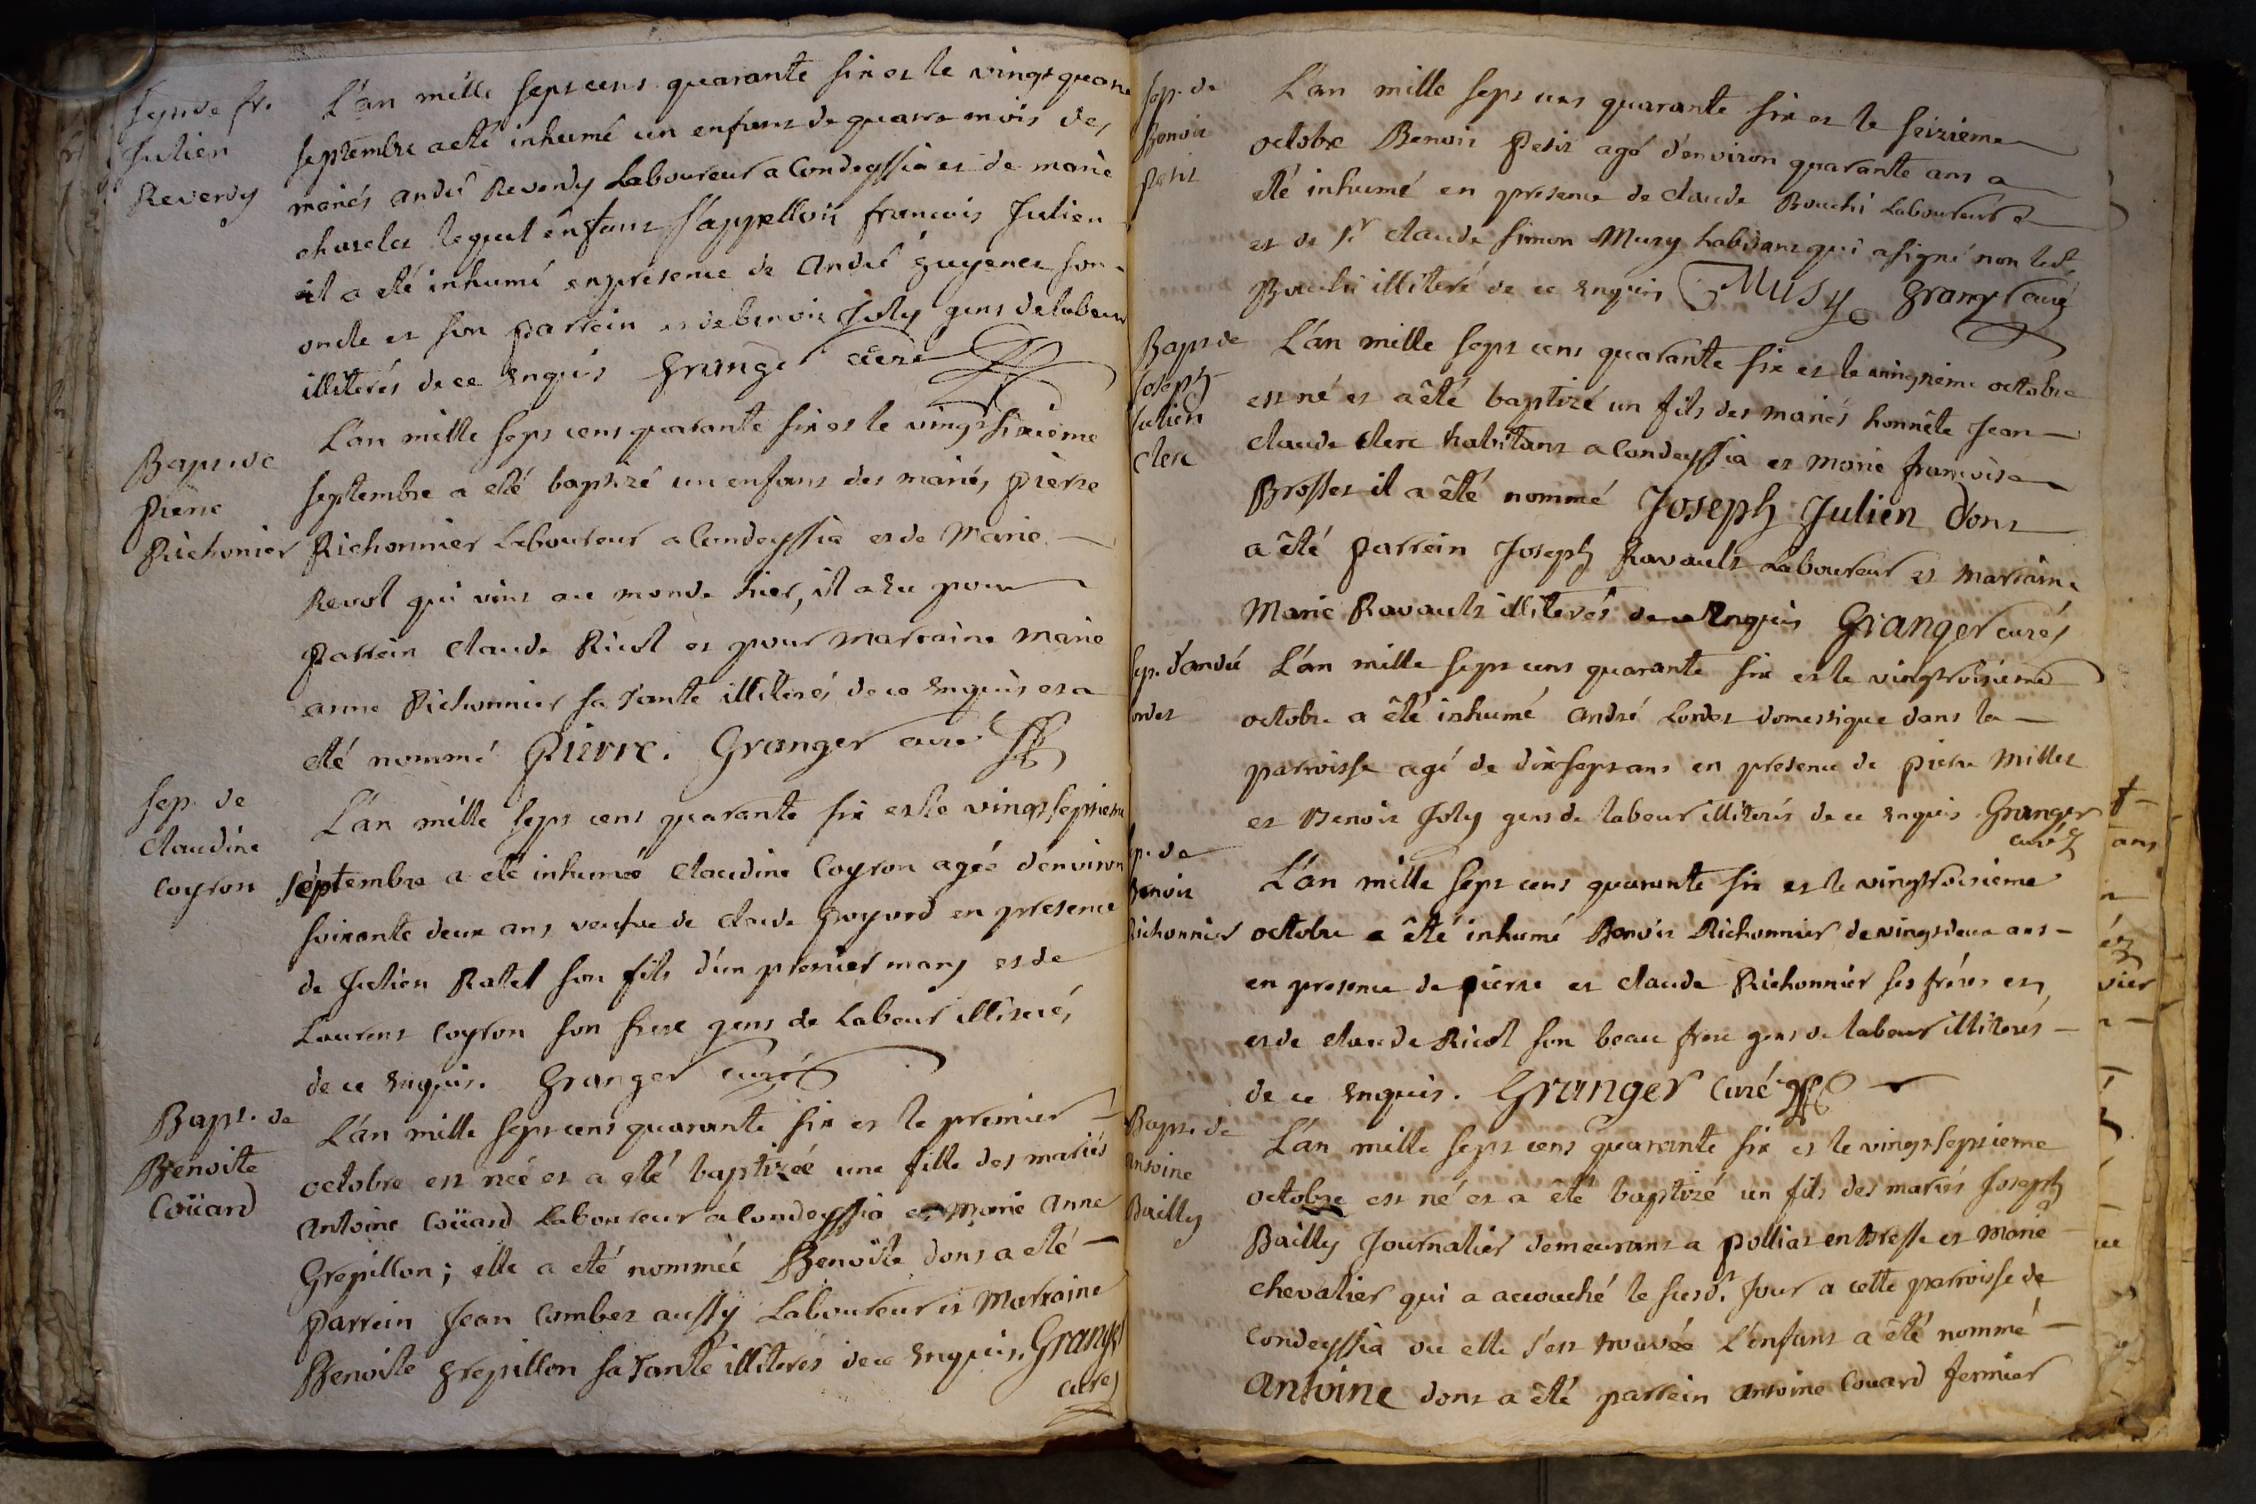 Sep. de fr.
Julien
Reverdy
L'an mille sept cens quarante six et le vingt quatre
septembre a eté inhumé un enfant de quatre mois des
mariés andré Reverdy Laboureur a Condeyssia et de marie
charles lequel enfant s'appelloit francois Julien
il a eté inhumé en presence de André guyenet son
oncle et son parrein et de benoit Joly gens de labeur
illiterés de ce Enquis Granger curé
Bapt. de
Pierre
Richonier
L'an mille sept cens quarante six et le vingt sixieme
septembre a eté baptizé un enfant des mariés pierre
Richonnier Laboureur a Condeyssia et de Marie
Revol qui vint au monde hier, il a eu pour
parrein Claude Ricol et pour marraine marie
anne Richonnier sa tante illiterés de ce Enquis et a
eté nommé Pierre. Granger curé
Sep. de
Claudine
Coyron
L'an mille sept cens quarante six et le vingt septieme
septembre a eté inhumée Claudine Coyron agée d'environ
soixante deux ans veufve de claude Goyard en presence
de Julien Ratel son fils d'un premier mary et de
Laurent Coyron son frere gens de Labeur illiterés
de ce Enquis. Granger curé
Bapt. de
Benoite
Coüard
L'an mille sept cens quarante six et le premier
octobre est née et a eté baptizée une fille des mariés
Antoine Coüard Laboureur a Condeyssia et Marie Anne
Grepillon; elle a eté nommée Benoite dont a eté
parrein Jean Combet aussy Laboureur et Marraine
Benoite grepillon sa tante illiterés de ce Enquis. Granger
curé
Sep. de
Benoit
petit
L'an mille sept cens quarante six et le seizieme
octobre Benoit Petit agé d'environ quarante ans a
eté inhumé en presence de claude Bouchi Laboureur
et de Sr claude Simon Musy habitant qui a signé non led.
Bouchi illiteré de ce Enquis Musy Granger curé
Bapt. de
Joseph
Julien
Clerc
L'an mille sept cens quarante six et le vingtieme octobre
est né et a êté baptizé un fils des mariés honnête Jean
claude Clerc habitant a Condeyssia et Marie francoise
Brosset il a êté nommé Joseph Julien dont
a êté parrein Joseph Ravault Laboureur et Marraine
Marie Ravault illiterés de ce Enquis Granger curé
Sep. d'andré
Lordet
L'an mille sept cens quarante six et le vingtroisieme
octobre a êté inhumé André Lordet domestique dans la
parroisse agé de dix sept ans en presence de pierre Millet
et Benoit Joly gens de labeur illiterés de ce Enquis Granger
curé
Sep. de
Benoit
Richonnier
L'an mille sept cens quarante six et le vingtroisieme
octobre a êté inhumé Benoit Richonnier de vingt deux ans
en presence de pierre et claude Richonnier ses fréres et
et de claude Ricol son beau frere gens de labeur illiterés
de ce Enquis. Granger Curé
Bapt. de
Antoine
Bailly
L'an mille sept cens quarante six et le vingt septieme
octobre est né et a êté baptizé un fils des mariés Joseph
Bailly Journalier demeurant a polliat en Bresse et Marie
Chevalier qui a accouché le susd. Jour a cette parroisse de
Condeyssia ou elle s'est trouvée L'enfant a êté nommé
Antoine dont a êté parrein Antoine Couard fermier